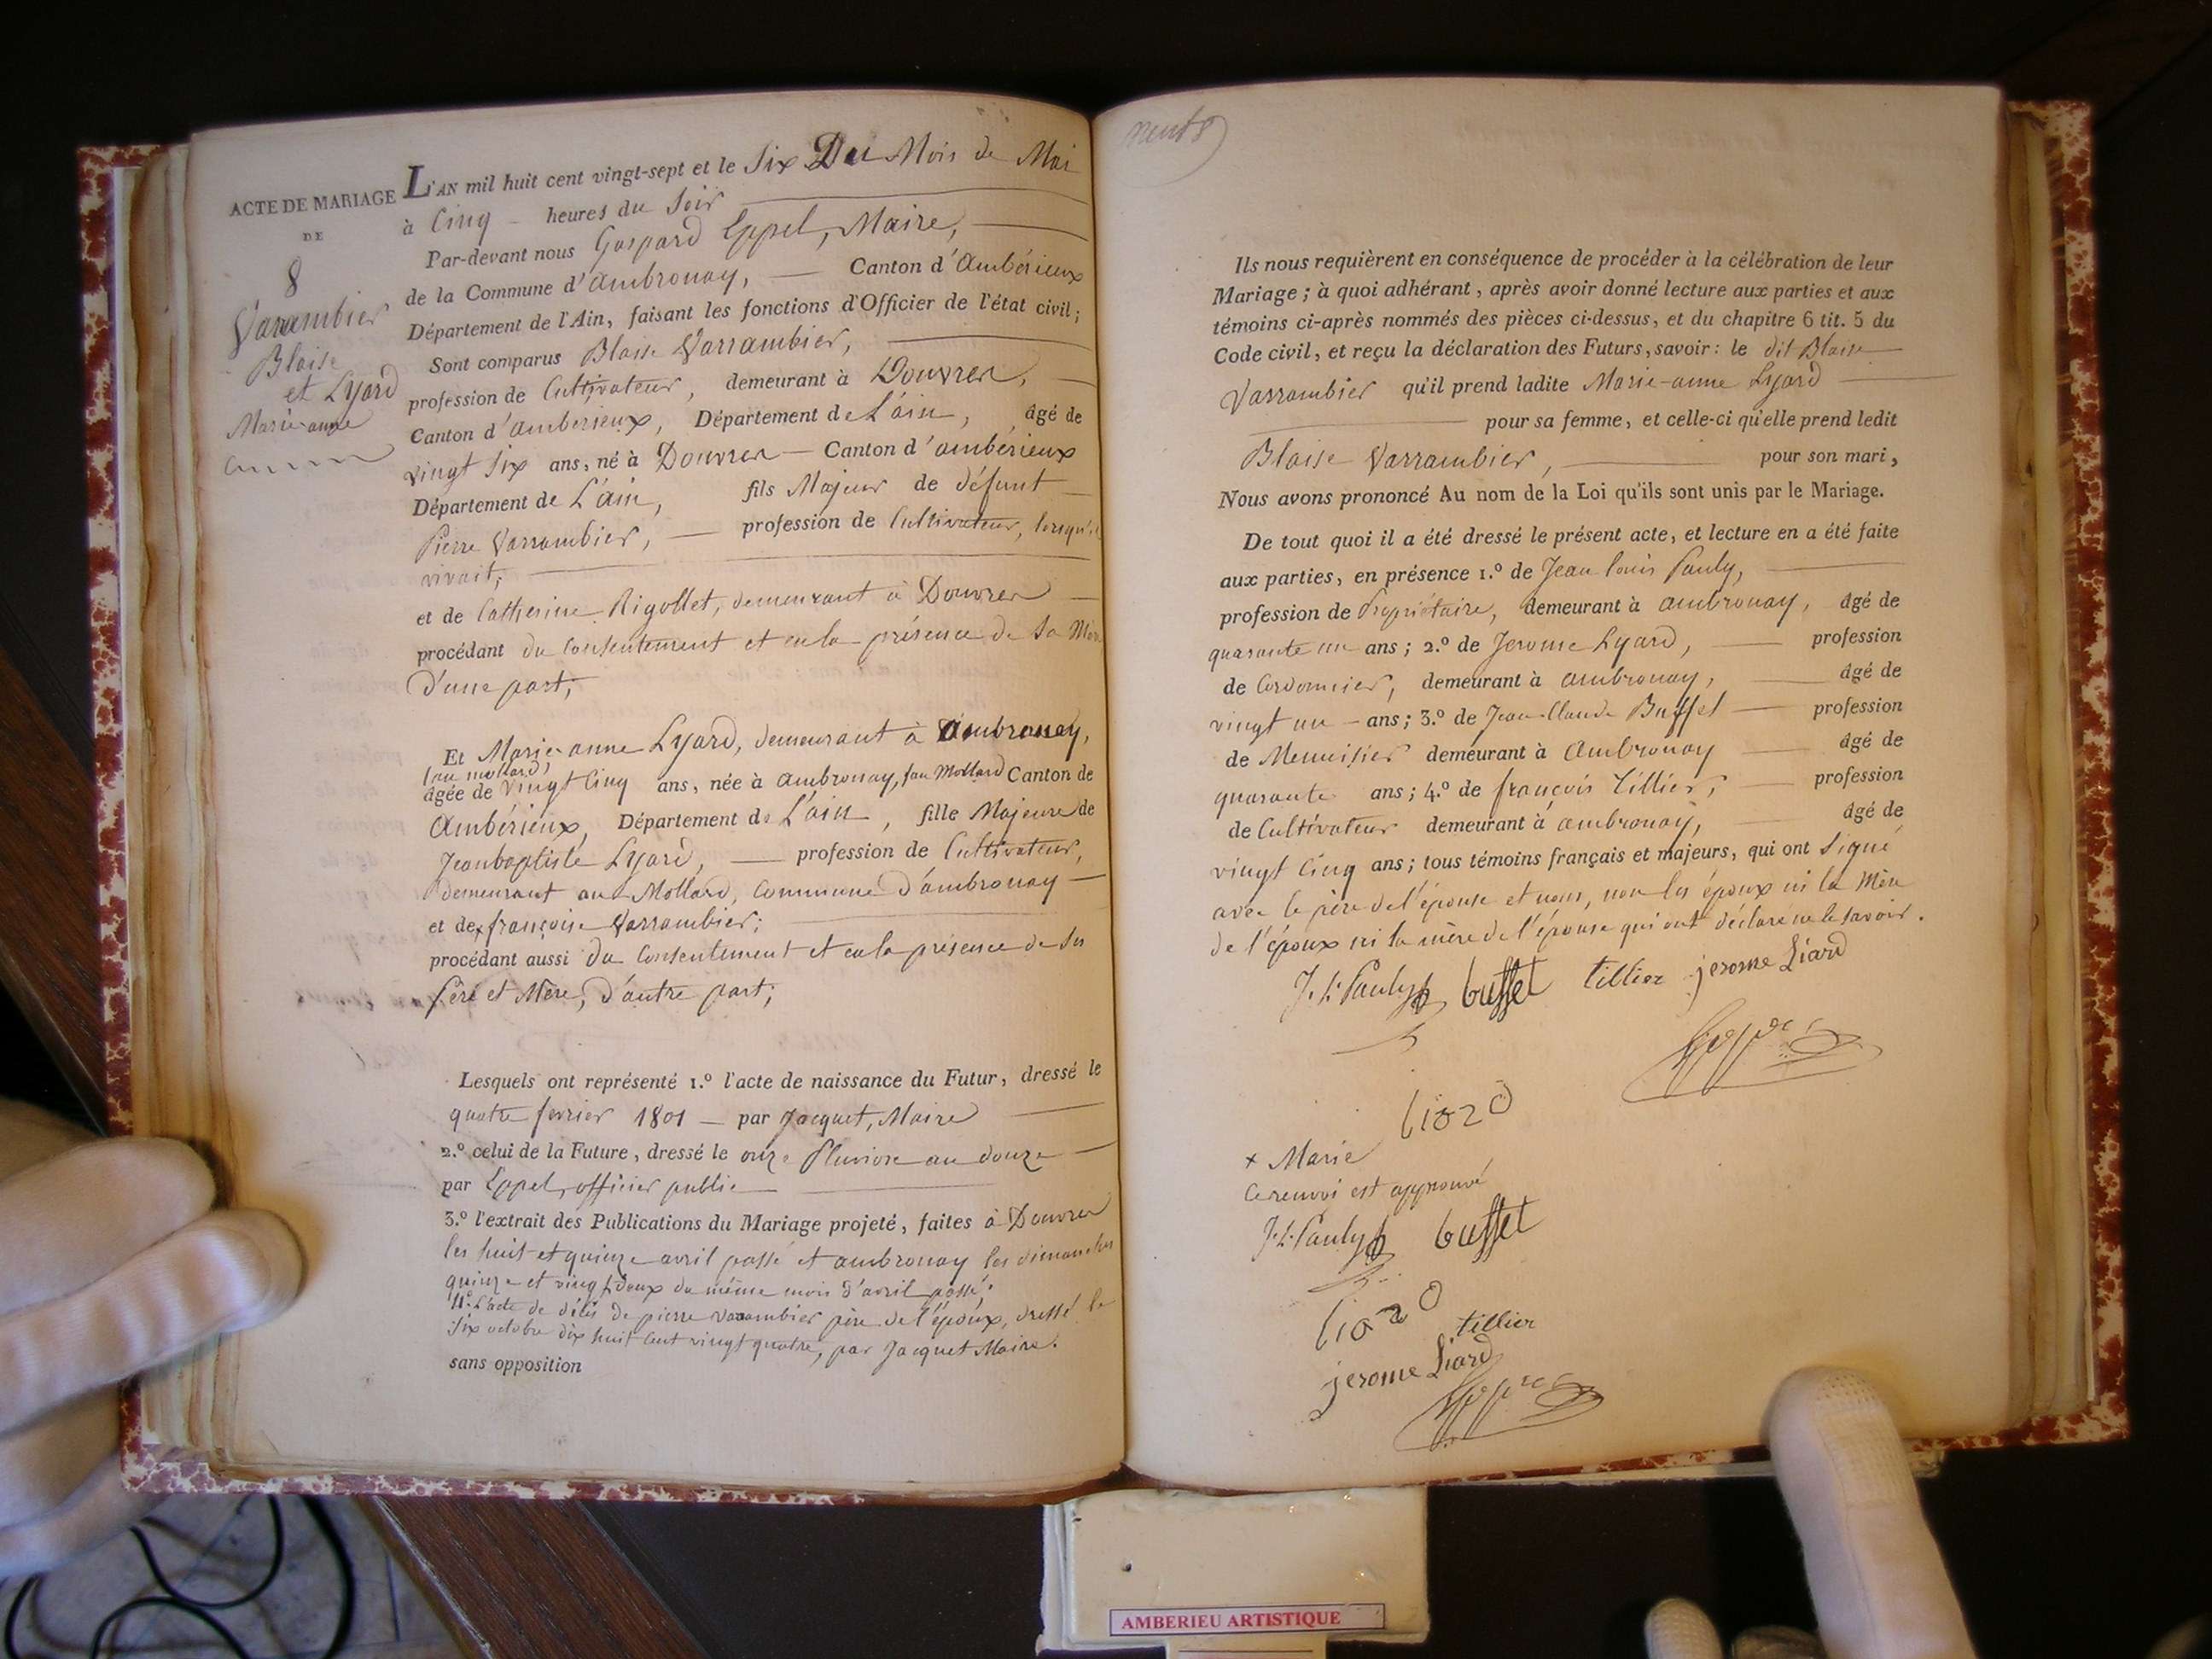 ACTE DE MARIAGE
DE
8
Varambier
Blaise
et Lyard
Marie-anne
L'AN mil huit cent vingt-sept et le Six Du Mois de Mai
à Cinq heures du Soir
Par-devant nous Gaspard Eppel, Maire,
de la Commune d'ambronay, Canton d'Ambérieux
Département de l'Ain, faisant les fonctions d'Officier de l'état civil;
Sont comparus Blaise Varrambier,
profession de Cultivateur, demeurant à Douvres,
Canton d'amberieux, Département de L'ain, âgé de
vingt Six ans, né à Douvres Canton d'ambérieux
Département de L'ain, fils Majeur de défunt
Pierre Varrambier, profession de Cultivateur, lorsqu'il
vivait;
et de Catherine Rigollet, demeurant à Douvres
procédant du Consentement et en la présence de Sa Mère
D'une part;
Et Marie-anne Lyard, demeurant à Ambronay,
(au mollard)
âgée de vingt Cinq ans, née à ambronay, (au Mollard Canton de
Ambérieux, Département de L'ain, fille Majeure de
Jeanbaptiste Lyard, profession de Cultivateur,
demeurant au Mollard, Commune d'ambronay
et de x françoise Varrambier;
procédant aussi du Consentement et en la présence de Ses
Père et Mère, d'autre part;
Lesquels ont représenté 1.º l'acte de naissance du Futur, dressé le
quatre fevrier 1801 par Jacquet, Maire
2.º celui de la Future, dressé le onze Pluviose an douze
par Eppel, officier public
3.º l'extrait des Publications du Mariage projeté, faites à Douvres
les huit et quinze avril passé et ambronay les dimanches
quinze et vingt deux du même mois d'avril passé;
4.º L'acte de décès de pierre Varambier père de l'époux, dressé le
Six octobre dix huit cent vingt quatre, par Jacquet Maire.
sans opposition
neuf 9
Ils nous requièrent en conséquence de procéder à la célébration de leur
Mariage; à quoi adhérant, après avoir donné lecture aux parties et aux
témoins ci-après nommés des pièces ci-dessus, et du chapitre 6 tit. 5 du
Code civil, et reçu la déclaration des Futurs, savoir: le dit Blaise
Varrambier qu'il prend ladite Marie-anne Lyard
pour sa femme, et celle-ci qu'elle prend ledit
Blaise Varrambier, pour son mari,
Nous avons prononcé Au nom de la Loi qu'ils sont unis par le Mariage.
De tout quoi il a été dressé le présent acte, et lecture en a été faite
aux parties, en présence 1.º de Jean Louis Pauly,
profession de Propriétaire, demeurant à ambronay, âgé de
quarante un ans; 2.º de Jerome Lyard, profession
de Cordonnier, demeurant à ambronay, âgé de
vingt un ans; 3.º de Jean-Claude Buffet profession
de Menuisier demeurant à Ambronay âgé de
quarante ans; 4.º de françois Tillier, profession
de Cultivateur demeurant à ambronay, âgé de
vingt Cinq ans; tous témoins français et majeurs, qui ont Signé
avec le père de l'épouse et nous, non les époux ni la Mère
de l'époux ni la mère de l'épouse qui ont déclaré ne le Savoir.
J. L. Pauly buffet tillier jerome Liard
Eppel
liard
x Marie
Ce renvoi est approuvé
J. L. Pauly buffet
liard tillier
jerome Liard
Eppel
AMBERIEU ARTISTIQUE